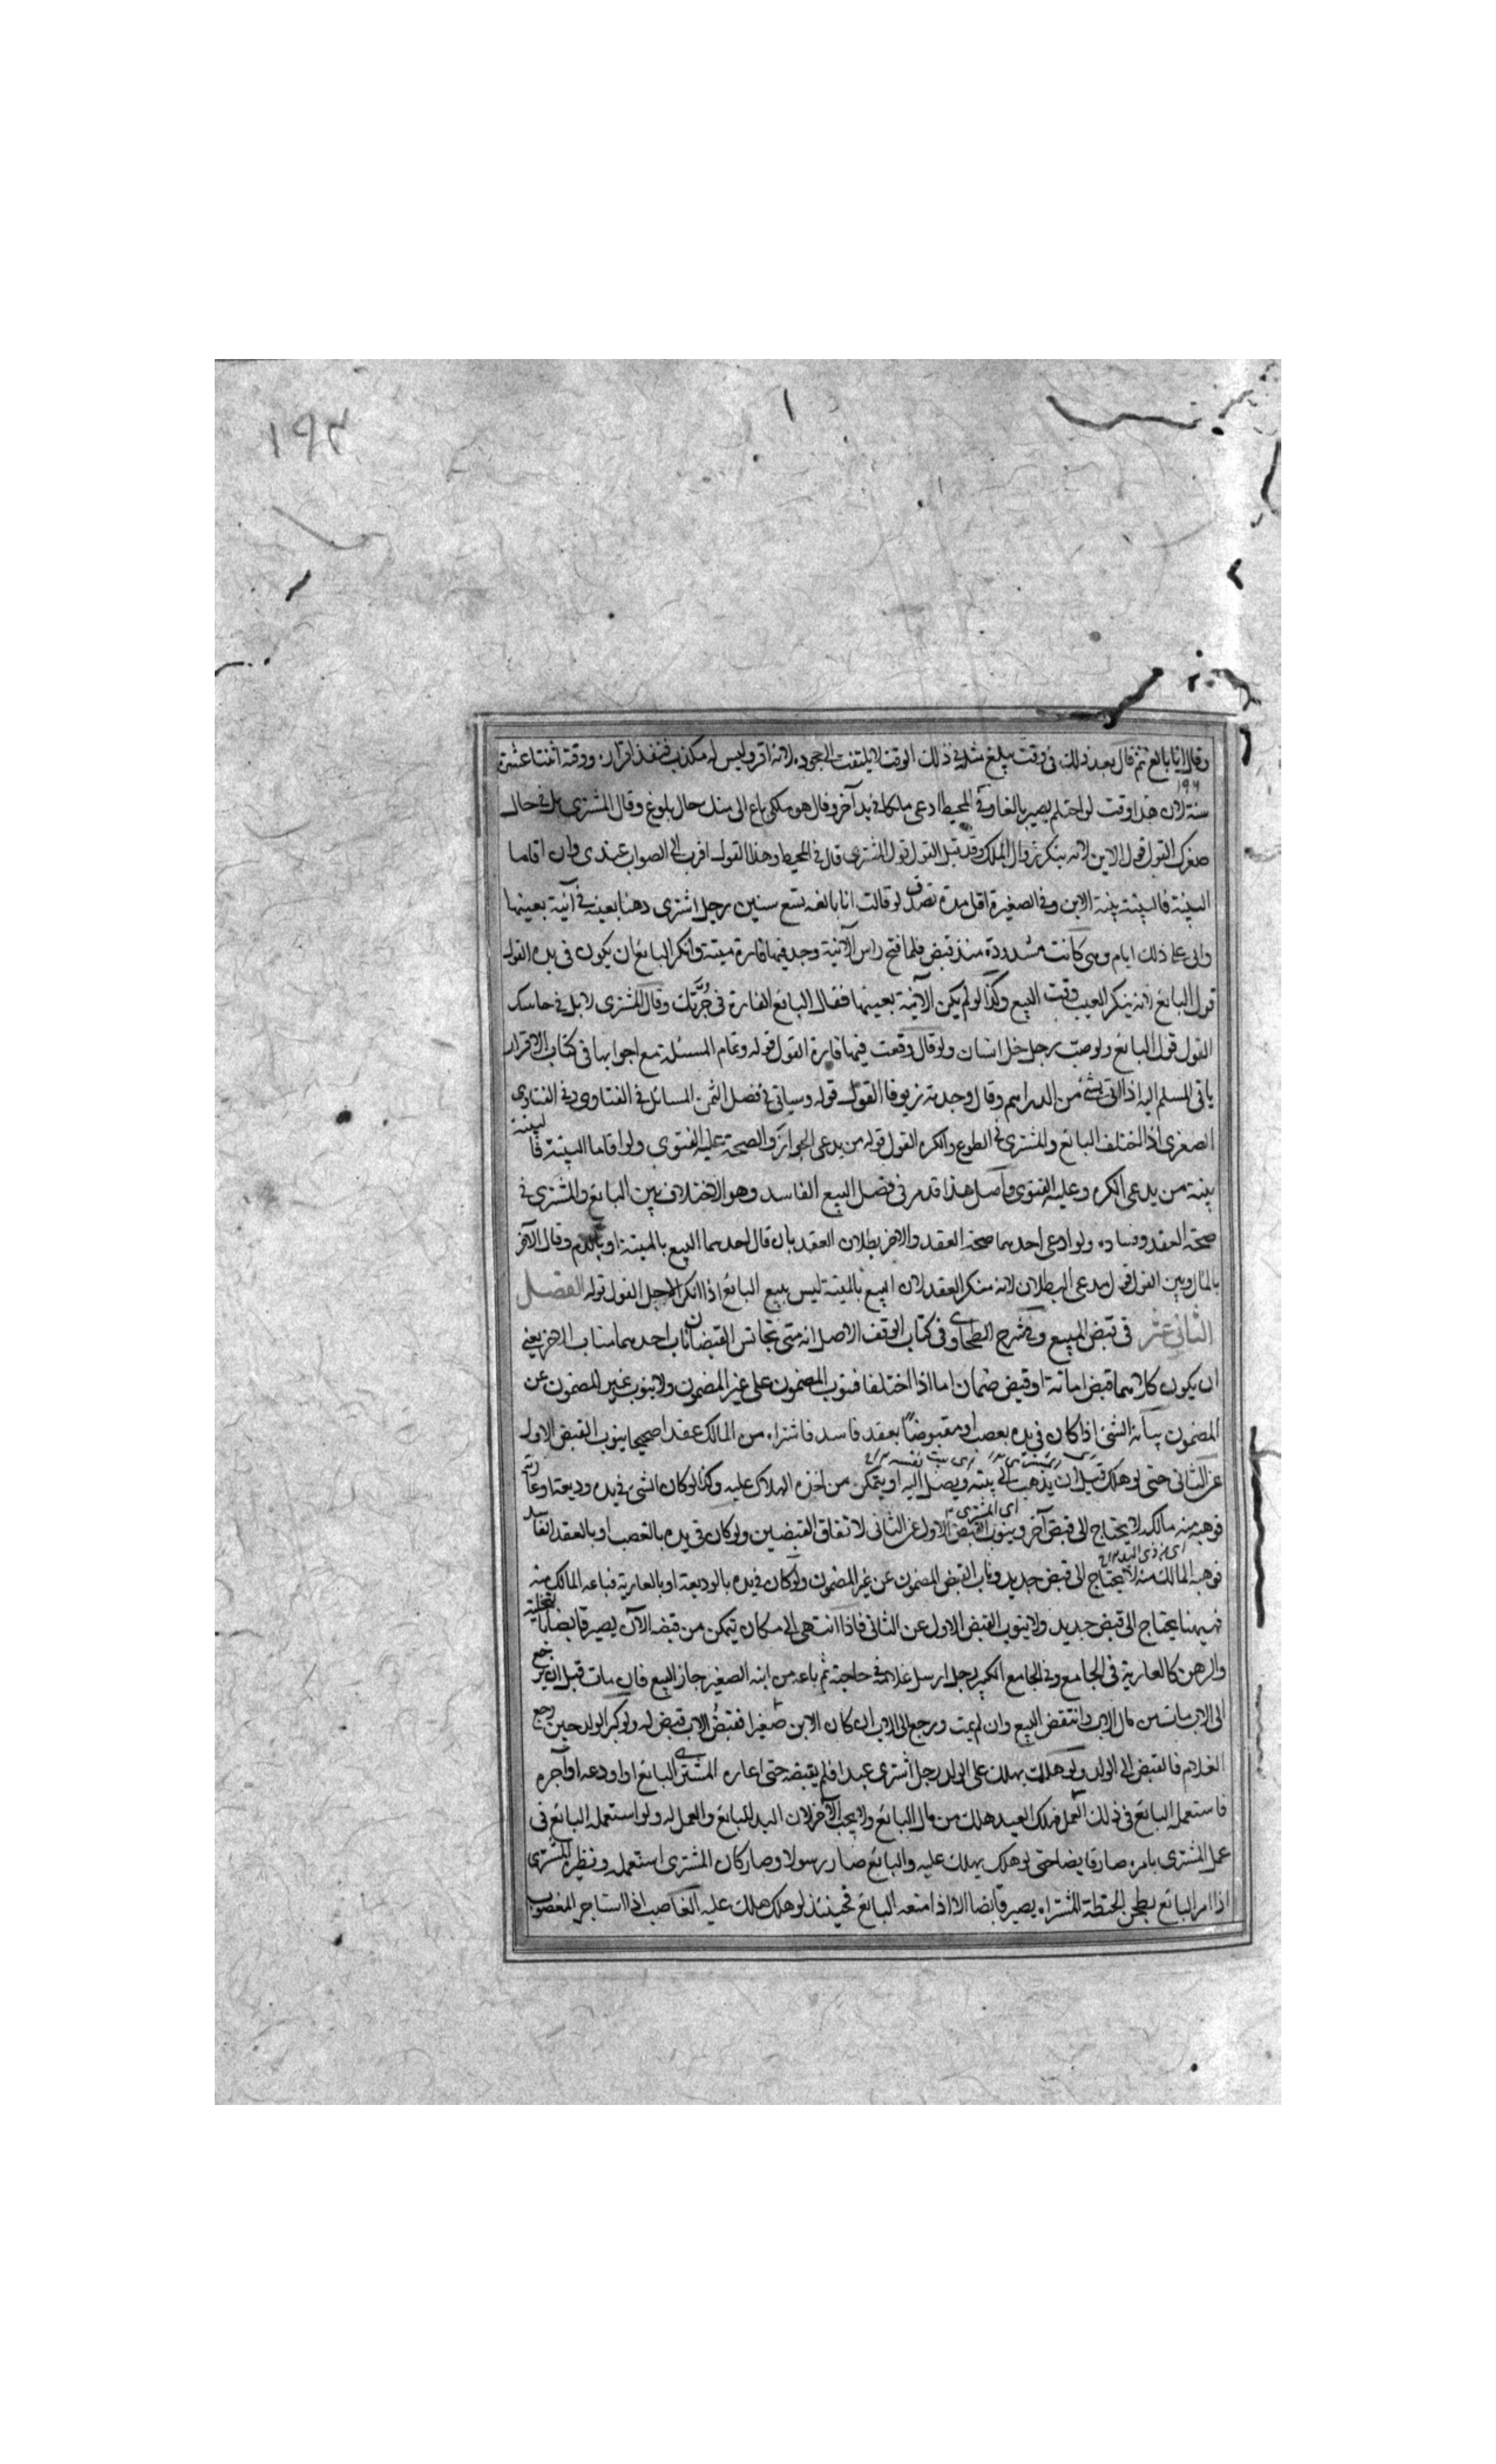 ١٩٢
وقال انا بالغ ثم قال بعد ذلك في وقت يبلغ مثله في ذلك الوقت لا يلتفت الى جحوده لانه اقر وليس له مكذب فنفذ اقراره ووقته اثنتا عشرة
١٩٦
سنة لان هذا وقت لو احتلم يصير بالغا وفي المحيط ادعى ملكا في يد آخر وقال هو ملكي باع ابي منك حال بلوغي وقال المشتري بل في حال
صغرك القول قول الابن لانه ينكر زوال الملك وقد قيل القول قول المشتري قال في المحيط وهذا القول اقرب الى الصواب عندي وان اقاما
البينة فالبينة بينة الابن وفي الصغيرة اقل مدة تصدق لو قالت انا بالغه تسع سنين رجل اشترى دهنا بعينه في آنية بعينها
واتى على ذلك ايام وهي كانت مشدودة منذ قبض فلما فتح راس الآنية وجد فيها فارة ميتة وانكر البائع ان يكون في يده القول
قول البائع لانه ينكر العيب وقت البيع وكذا لو لم يكن الآنية بعينها فقال البائع الفارة في جرتك وقال المشتري لا بل في
القول قول البائع ولو صب رجل خل انسان ولو قال وقعت فيها فارة القول قوله وتمام المسئلة مع اجوابها في كتاب الاقرار
ياتي المسلم اليه اذا اتى بشئ من الدراهم وقال وجدته زيوفا القول قوله وسياتي في فصل الثمن المسائل في الفتاوى وفي الفتاوى
الصغرى اذا اختلف البائع والمشتري في الطوع والكره القول قوله من يدعي الجواز والصحة عليه الفتوى ولو اقاما البينة فالبينة
بينة من يدعي الكره وعليه الفتوى واصل هذا قد مر في فصل البيع الفاسد وهو الاختلاف بين البائع والمشتري في
صحة العقد وفساده ولو ادعى احدهما صحة العقد والاخر بطلان العقد بان قال احدهما البيع بالميتة او بالدم وقال الآخر
بالمال وبين القول قول مدعي البطلان لانه منكر العقد لان البيع بالميتة ليس ببيع البائع اذا انكر الاجل القول قوله الفصل
الثاني عشر في قبض المبيع وفي شرح الطحاوي وفي كتاب الوقف الاصل انه متى تجانس القبضان ناب احدهما مناب الاخر يعني
ان يكون كلاهما قبض امانة او قبض ضمان اما اذا اختلفا فينوب المضمون على غير المضمون ولا ينوب غير المضمون عن
المضمون بيانه الشئ اذا كان في يده بغصب او مقبوضا بعقد فاسد فاشتراه من المالك عقدا صحيحا ينوب القبض الاول
عن الثاني حتى لو هلك قبل ان يذهب الى بيته ويصل اليه او يتمكن من اخذه الهلاك عليه وكذا لو كان الشئ في يده وديعة او عارية
اى المشتري
فوهبه منه مالكه لا يحتاج الى قبض آخر وينوب القبض الاول عن الثاني لاتفاق القبضين ولو كان في يده بالغصب او بالعقد الفاسد
اى من ذي اليد
فوهبه المالك منه لا يحتاج الى قبض جديد وناب القبض المضمون عن غير المضمون ولو كان في يده بالوديعة او بالعارية فباعه المالك منه
فههنا يحتاج الى قبض جديد ولا ينوب القبض الاول عن الثاني فاذا انتهى الى مكان يتمكن من قبضه الآن يصير قابضا بالتخلية
والرهن كالعارية في الجامع وفي الجامع الكبير رجل ارسل غلامه في حاجته ثم باعه من ابنه الصغير جاز البيع فان مات قبل ان يرجع
الى الاب مات من مال الاب وانتقض البيع وان لم يمت ورجع الى الاب ان كان الابن صغيرا فقبض الاب قبض له ولو كبر الولد حين رجع
الغلام فالقبض الى الولد ولو هلك يهلك على الولد رجل اشترى عبدا فلم يقبضه حتى اعاره المشتري البائع او اودعه او آجره
فاستعمله البائع في ذلك العمل فهلك العبد هلك من مال البائع ولا يجب الاجر لان اليد للبائع والعمل له ولو استعمله البائع في
عمل المشتري بامره صار قابضا حتى لو هلك يهلك عليه والبائع صار رسولا وصار كان المشتري استعمله ونظيره المشتري
اذا امر البائع بطحن الحنطة المشتراه يصير قابضا الا اذا منعه البائع فحينئذ لو هلك هلك عليه الغاصب اذا استاجر المغصوب